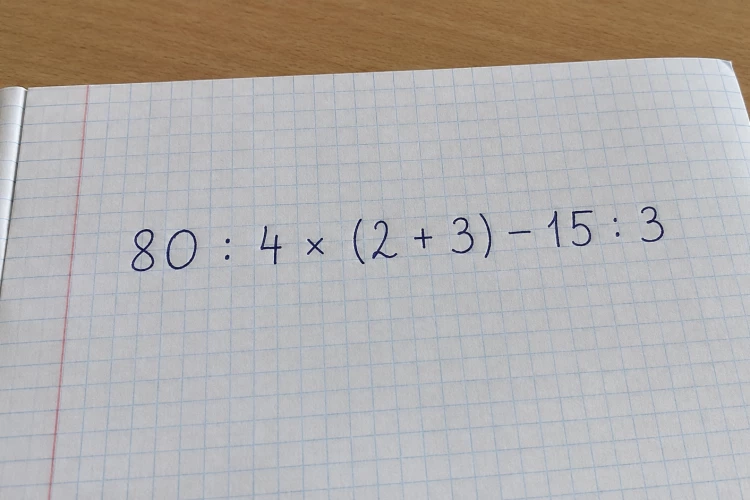 80 : 4 × (2 + 3) − 15 : 3